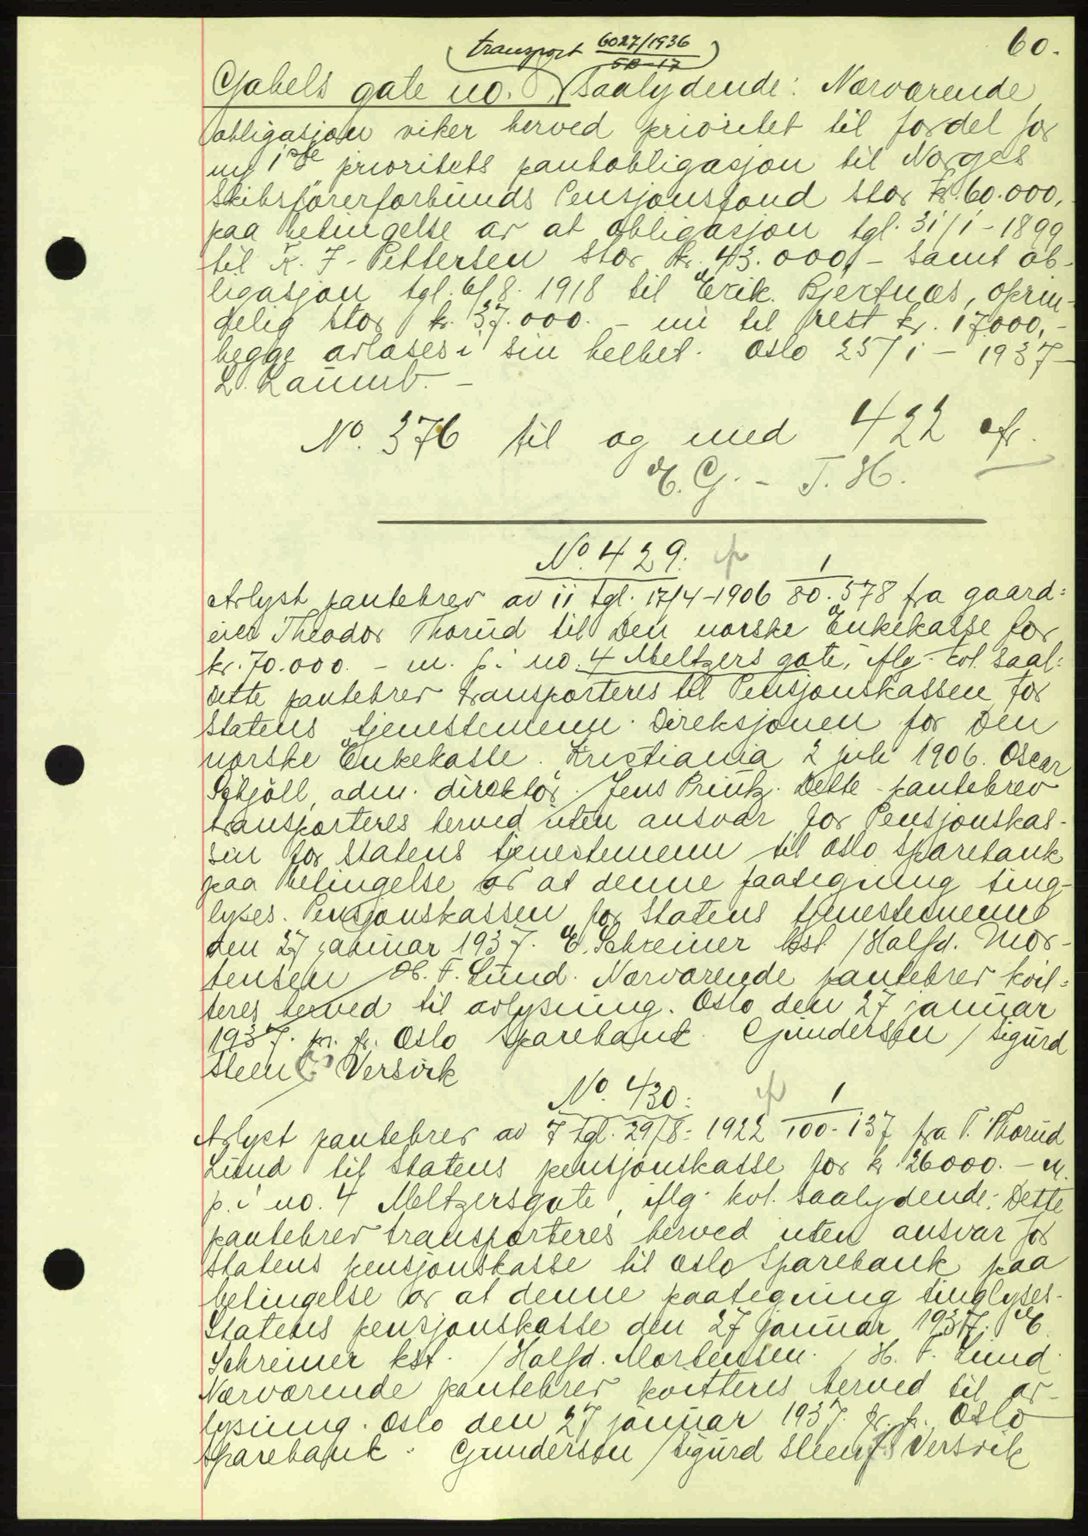 60.
(transport 6027/1936 58-17)
Gabels gate no. 8, saalydende: Nærværende
obligasjon viker herved prioritet til fordel for
ny 1ste prioritets pantobligasjon til Norges
Skibsförerforbunds Pensjonsfond stor kr. 60.000,-
paa betingelse av at obligasjon tgl. 31/1-1899
til K. J. Pettersen stor kr. 43.000,- samt ob-
ligasjon tgl. 6/8. 1918 til Erik Bjertnæs, oprin-
delig stor kr. 37.000.- nu til rest kr. 17000,-
begge avlases i sin helhet. Oslo 25/1-1937-
L. Laumb.-
No. 376 til og med 422 efr.
E. G. - T. H.
No. 429:
Avlyst pantebrev av 11 tgl. 17/4-1906 1/80.578 fra gaard-
eier Theodor Thorud til Den norske Enkekasse for
kr. 70.000.- m. p. i no. 4 Meltzers gate, Mg. kvl. saal:
Dette pantebrev transporteres til Pensjonskassen for
statens tjenestemenn. Direksjonen for Den
norske Enkekasse. Kristiania 2 juli 1906. Oscar
Schjöll, adm. direktör. Jens Printz. Dette pantebrev
transporteres herved uten ansvar for Pensjonskas-
sen for Statens tjenestemenn til Oslo Sparebank
paa betingelse av at denne paategning ting-
lyses. Pensjonskassen for Statens tjenestemenn
den 27 januar 1937. E. Schreiner kst / Halfd. Mor-
tensen / H. F. Lund. Nærværende pantebrev kvit-
teres herved til avlysning. Oslo den 27 januar
1937. pr. pr. Oslo Sparebank Gunderson / Sigurd
Steen Versvik
No. 430:
Avlyst pantebrev av 7 tgl. 29/8-1922 1/100-137 fra T. Thorud
Lund til Statens pensjonskasse for kr 26000.- m.
p. i no. 4 Meltzersgate, Mg. kvl. saalydende: Dette
pantebrev transporteres herved uten ansvar for
Statens pensjonskasse til Oslo Sparebank paa
betingelse av at denne paategning tinglyses.
Statens pensjonskasse den 27 januar 1937. E.
Schreiner kst. / Halfd. Mortensen. / H. F. Lund.
Nærværende pantebrev kvitteres herved til av-
lysning. Oslo den 27 januar 1937. pr. pr. Oslo
Sparebank. Gunderson / Sigurd Steen Versvik